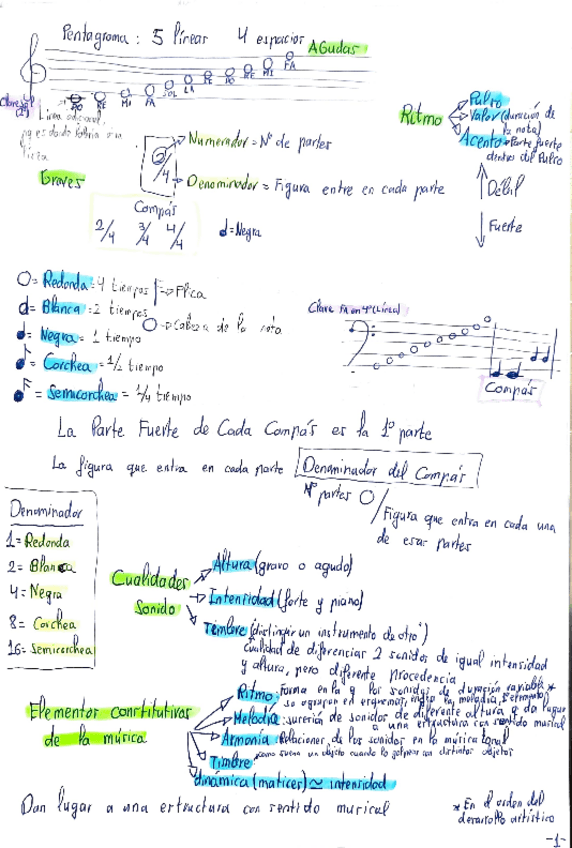 Pentagrama: 5 líneas 4 espacios
AGudas
DO RE MI FA SOL LA SI DO RE MI FA
Linea adicional,
pieza
Graves
Ritmo
Pulso
Valor (duración de
la nota)
Acento = Parte fuerte
dentro del Pulso
Débil
Fuerte
Numerador = Nº de partes
2/4
Denominador = Figura entre en cada parte
Compás
2/4 3/4 4/4
= Negra
= Redonda = 4 tiempos → Plica
= Blanca = 2 tiempos
→ Cabeza de la nota
= Negra = 1 tiempo
= Corchea = 1/2 tiempo
= Semicorchea = 1/4 tiempo
Clave FA en 4º (Línea)
Compás
La Parte Fuerte de Cada Compás es la 1º parte
La figura que entra en cada parte Denominador del Compás
Nº partes
Figura que entra en cada una
de esas partes
Denominador
1 = Redonda
2 = Blanca
4 = Negra
8 = Corchea
16 = Semicorchea
Cualidades
Sonido
Altura (grave o agudo)
Intensidad (forte y piano)
Timbre (distinguir un instrumento de otro)
Cualidad de diferenciar 2 sonidos de igual intensidad
y altura, pero diferente Procedencia
Elementos constitutivos
de la música
Ritmo: Forma en la q los sonidos de duración variable *
se agrupan en esquemas,
Melodía: sucesión de sonidos de diferente altura q da lugar
a una estructura con sentido musical
Armonía: Relaciones de los sonidos en la música tonal
Timbre: como suena un objeto cuando lo golpeas con distintos objetos
dinámica (matices) ≃ intensidad
Dan lugar a una estructura con sentido musical
* En el orden del
desarrollo artístico
-1-